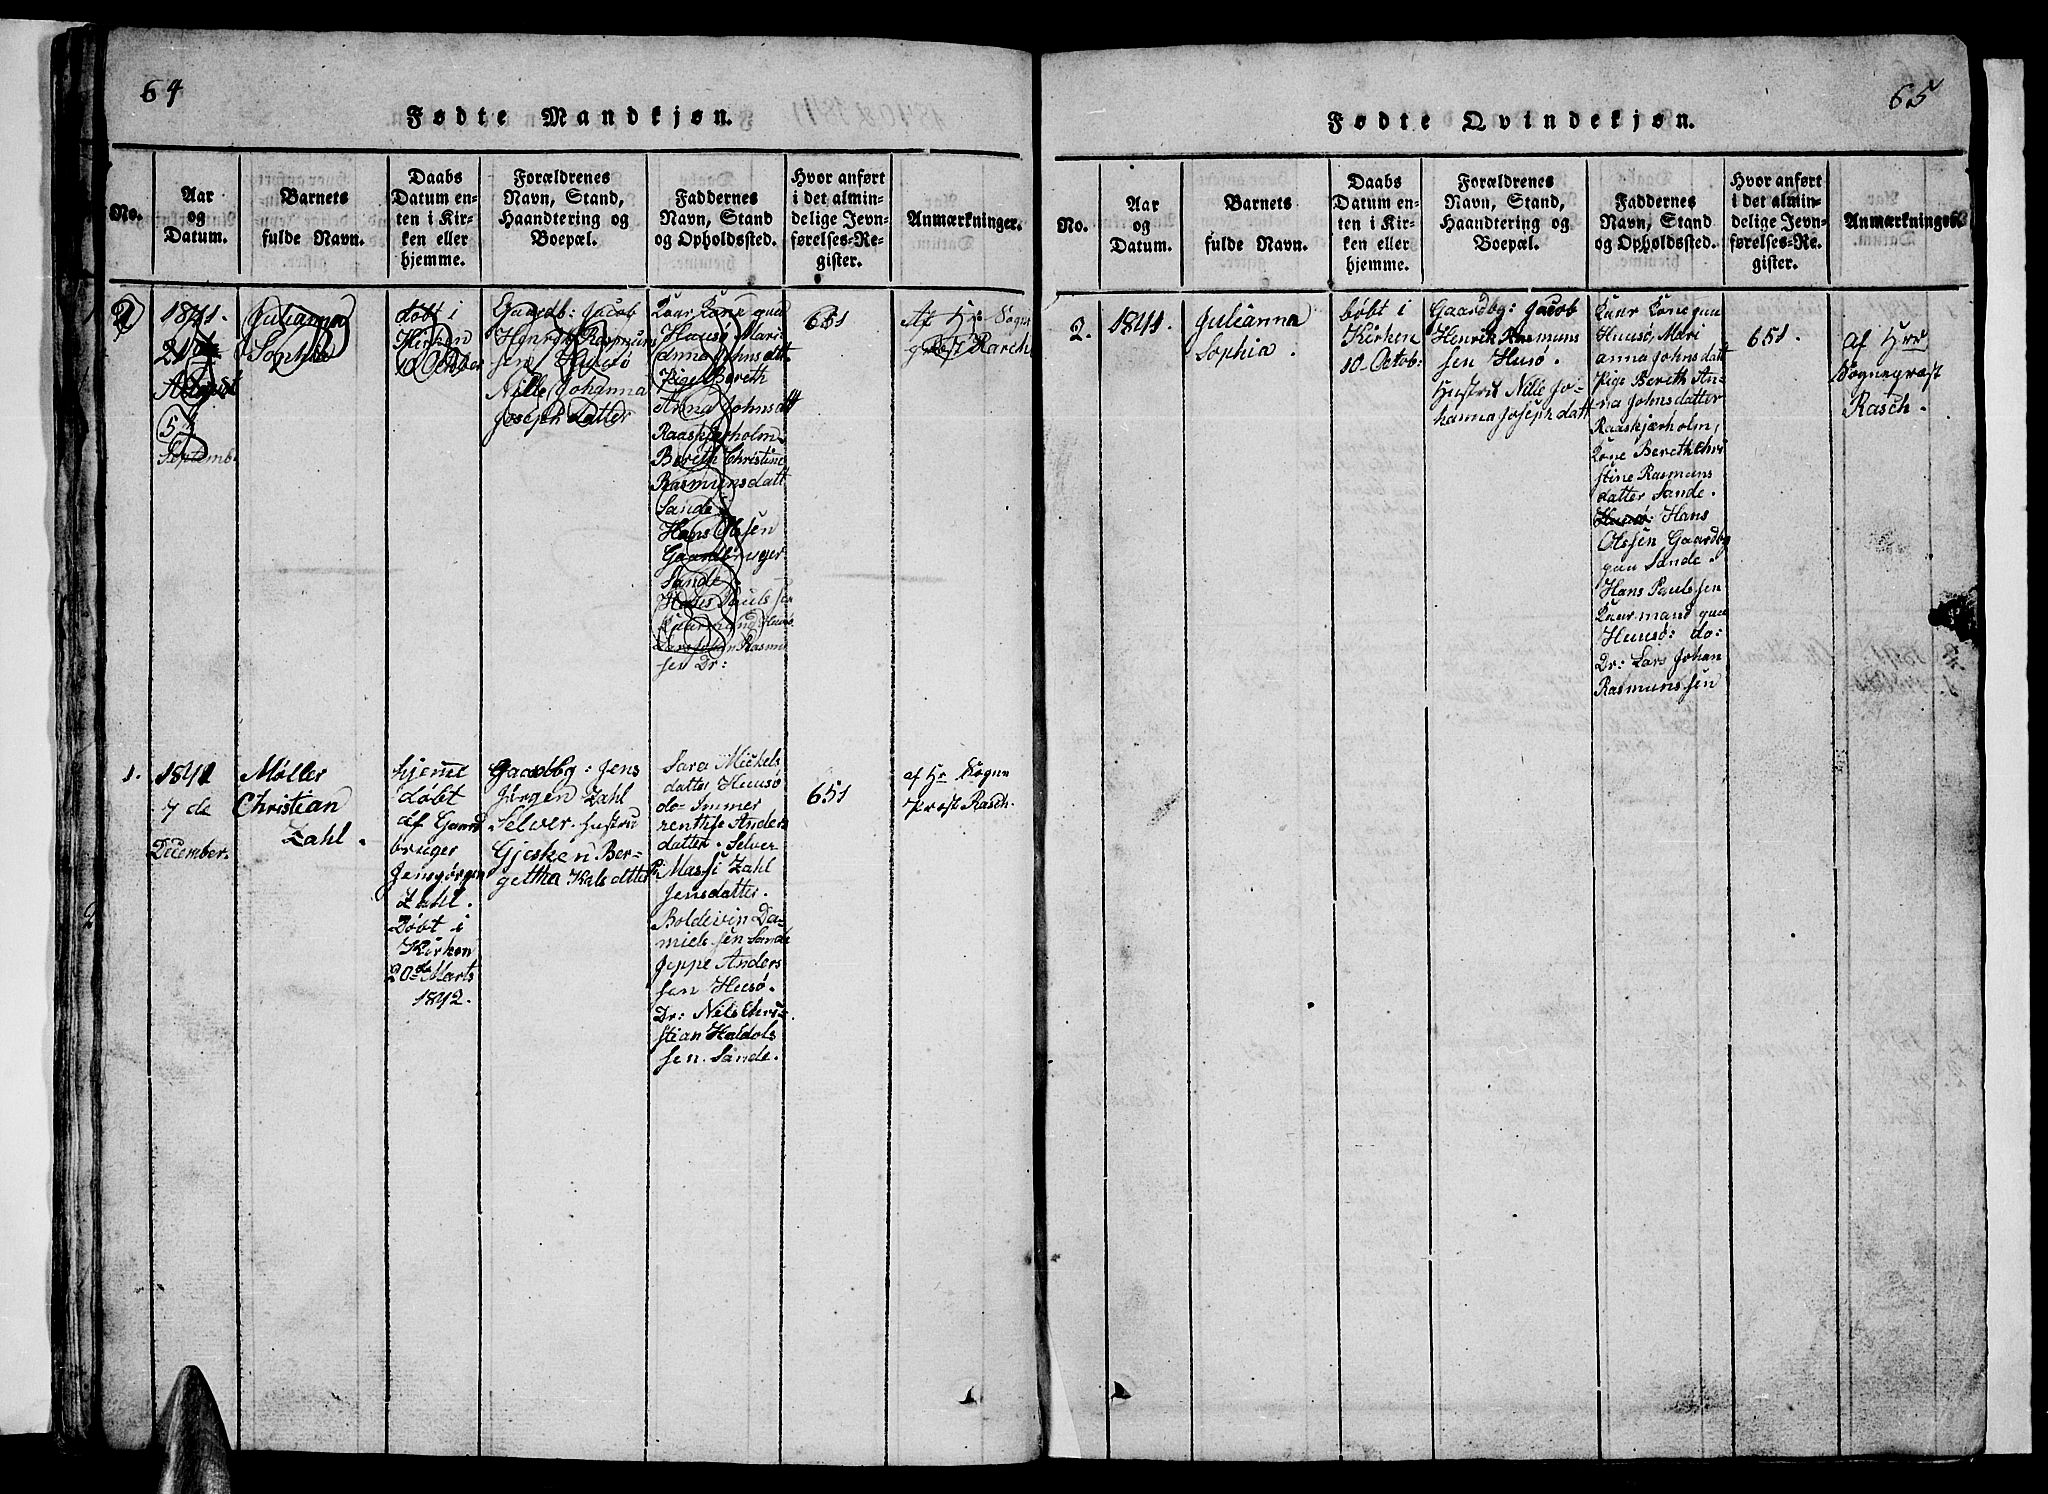 64
Fødte Mandkjøn.
No.
Aar
og
Datum.
Barnets
fulde Navn.
Daabs
Datum en-
ten i Kir-
ken eller
hjemme.
Forældrenes
Navn, Stand,
Haandtering og
Boepæl.
Faddernes
Navn, Stand
og Opholdssted.
Hvor anført
i det almin-
delige Jevn-
førelses-Re-
gister.
Anmærkninger.
2
1841.
August
5
Septemb
Julianna
Sophia
døbt i
Kirken
10 Octbr
Gaardb: Jacob
Henrik Rasmun
sen Husø
Nille Johanna
Joseph Datter
Kaar Kone paa
Huusø Mari
anna Johnsdatt
Pige Bereth
Anna Johnsdatt
Raaskjærholm
Bereth Christine
Rasmunsdatt
Sande
Hans Olssen
Gaardbruger
Sande.
Hans Pauls sen
Kaarmand Huusø
Lars Johan Rasmu
sen Dr:
651
Af Hr Sogne
prost Rasch
1.
1841
7 de
December.
Møller
Christian
Zahl.
hjemme
døbt
af Gaard
bruger
Jensjørgen
Zahl.
Døbt i
Kirken
20de Marts
1842.
Gaardbg: Jens
Jørgen Zahl
Selver. hustru
Gjesken Ber-
getha Kalsdatter
Sara Mickels
datter Huusø
do- Immer
renthse Anders
datter. Selver
Pi Massi Zahl
Jensdatter.
Boldevin Da-
niels sen Sande
Jeppe Anders
sen Huusø.
Dr: Nils Chri-
stian Haldols
sen. Sande.
651
af Hr Sogne
Prost Rasch.
65
Fødte Qvindekjøn.
No.
Aar
og
Datum.
Barnets
fulde Navn.
Daabs
Datum en-
ten i Kir-
ken eller
hjemme.
Forældrenes
Navn, Stand,
Haandtering og
Boepæl.
Faddernes
Navn, Stand
og Opholdssted.
Hvor anført
i det almin-
delige Jevn-
førelses-Re-
gister.
Anmærkninger.
2.
1841.
Julianna
Sophia.
døbt i
Kirken
10- Octob:
Gaardbg: Jacob
Henrik Rasmuns
sen Husø.
Hustru Nille Jo-
hanna Joseph datt
Kaar Kone paa
Huusø, Mari
anna Johnsdatt
Pige Bereth An-
na Johnsdatter
Raaskjærholm,
Kone Bereth Chri
stine Rasmuns
datter Sande.
Husø: Hans
Olssen Gaardbg
paa Sande.
Hans Pauls sen
Kaarmand paa
Huusø: do-
Dr: Lars Johan
Rasmuns sen
651.
af Hrr
Sogneprost
Rasch.